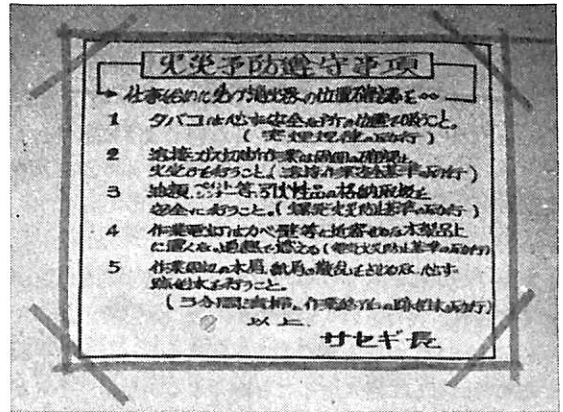 火災予防遵守事項
仕事始めに先づ消火器の位置確認を
1 タバコは必ず安全な所の位置で吸うこと。
(の励行)
2 溶接、ガス切断作業は周囲の確認、
火受けを行うこと。(溶接作業安全基準の励行)
3 油類、シンナー等、引火性品の格納取扱を
安全に行うこと。(爆発火災防止基準の励行)
4 作業電灯はカベ、壁等に近寄せるな、木製品上
に置くな、過熱で燃える(電気火災防止基準の励行)
5 作業周辺の木屑、紙屑の散乱をさせるな、必ず
跡始末を行うこと。
(3分間清掃、作業終了后の跡始末の励行)
以上
サセギ長